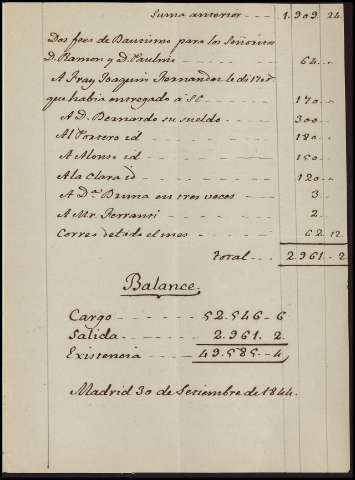 Suma anterior - - - 1.909. 24.
Dos fees de Bautismo para los Señoritos
D. Ramon y D. Paulino - - - - - 64 - -
A Fray Joaquin Fernandez le di
que habia entregado á SE - - - - 170 - -
A D. Bernardo su sueldo - - - 300 - -
Al Portero id - - - - 180 - -
A Alonso id - - - - 150 - -
A la Clara id - - - - 120 - -
A Dª Bruna en tres veces - - - 3 - -
A Mr. Ferransi - - - - 2 - -
Correo de todo el mes - - - - 62. 12.
Total - - - 2.961. - 2
Balance.
Cargo - - - - - 52.546 - 6
Salida - - - - - 2.961. 2.
Existencia - - - - 49.585. - 4
Madrid 30 de Setiembre de 1844.